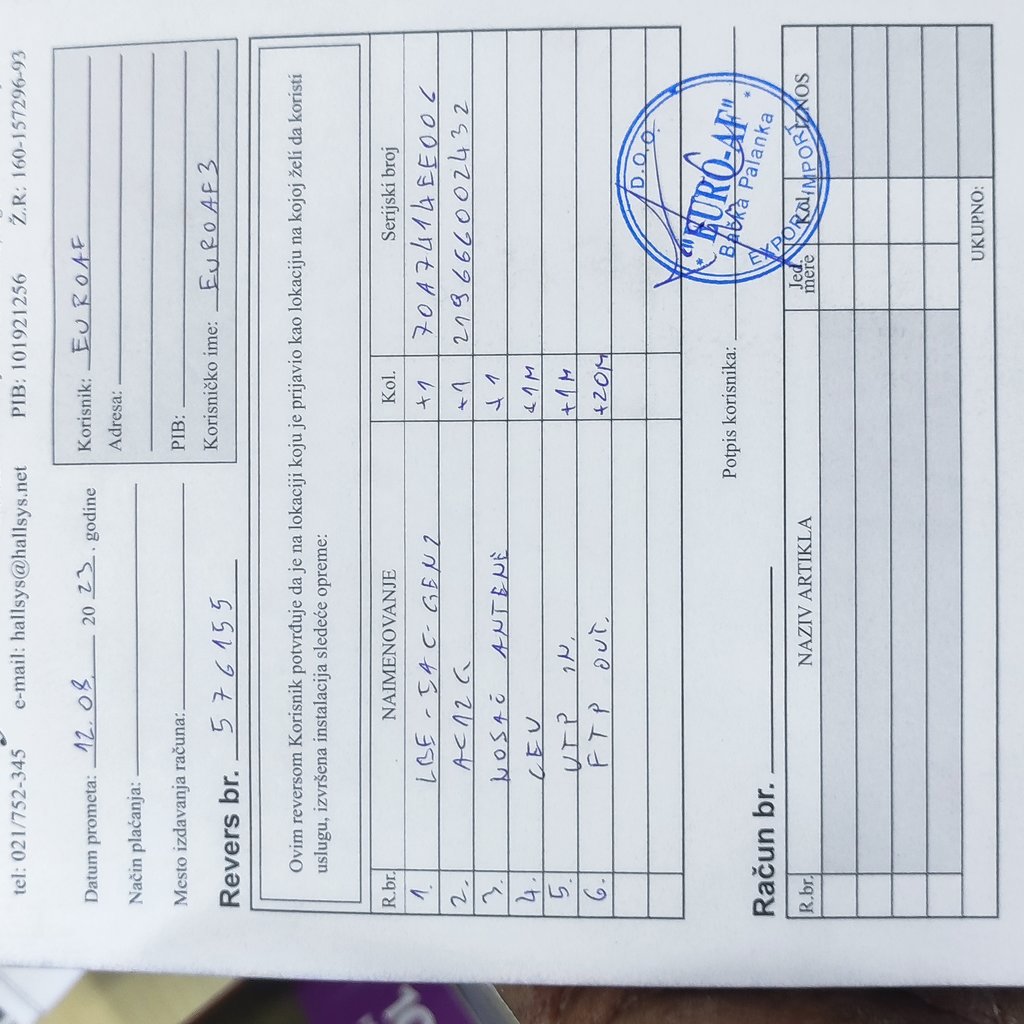 tel: 021/752-345 e-mail: hallsys@hallsys.net PIB: 101921256 Ž.R: 160-157296-93
Datum prometa: 12.08. 2023. godine
Način plaćanja:
Mesto izdavanja računa:
Korisnik: EUROAF
Adresa:
PIB:
Korisničko ime: EUROAF3
Revers br. 576155
Ovim reversom Korisnik potvrđuje da je na lokaciji koju je prijavio kao lokaciju na kojoj želi da koristi
uslugu, izvršena instalacija sledeće opreme:
R.br. NAIMENOVANJE Kol. Serijski broj
1. LBE-5AC-GEN2 +1 70A7414EE00C
2. AC12G +1 2196660002432
3. NOSAČ ANTENE +1
4. CEV +1M
5. UTP IN. +1M
6. FTP OUT. +20M
Potpis korisnika:
D.O.O.
"EURO-AF"
Bačka Palanka
EXPORT-IMPORT
Račun br.
R.br. NAZIV ARTIKLA Jed. mere Kol. IZNOS
UKUPNO: